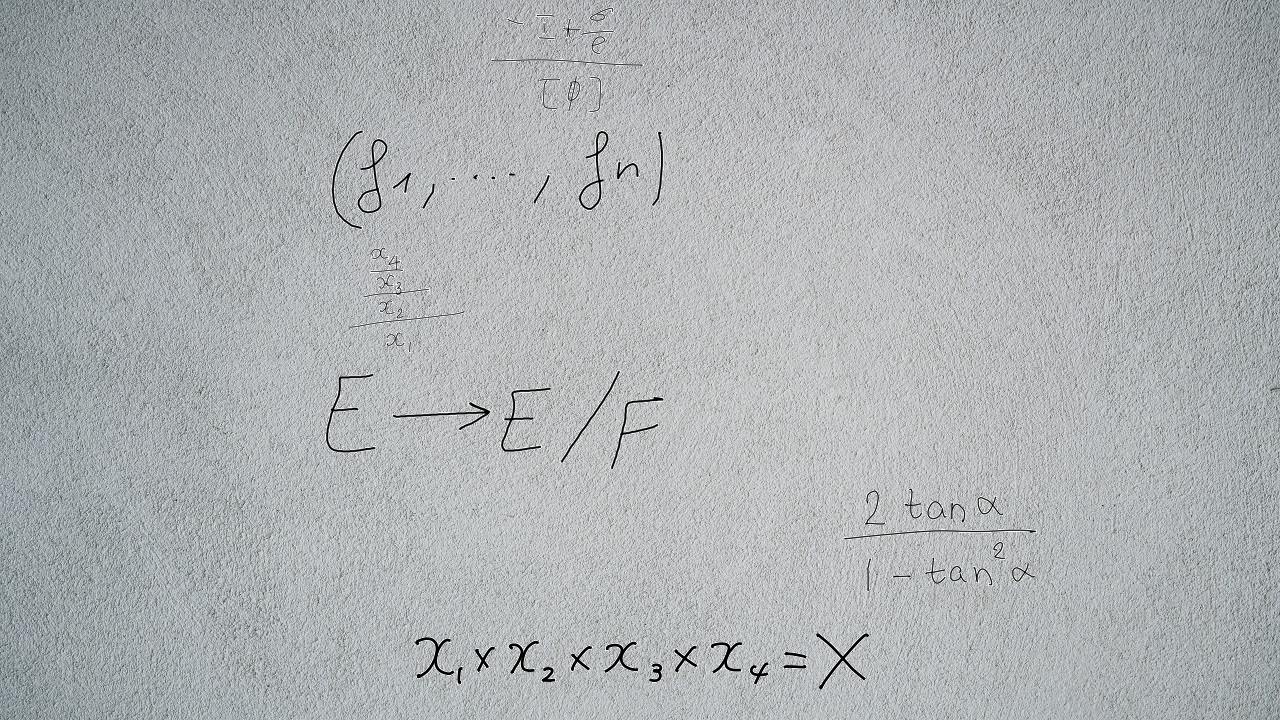 -I + σ/e
[ϕ]
(f₁, ....., fn)
x₄
x₃
x₂
x₁
E → E/F
2 tan α
1 - tan² α
x₁ × x₂ × x₃ × x₄ = X